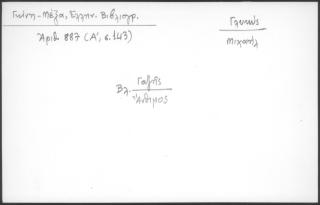 Γκίνη-Μέξα, Ελλην. Βιβλιογρ.
Ἀριθ. 887 (Α', σ. 143)
Γλυκύς
Μιχαήλ
Βλ. Γαζῆς
Ἄνθιμος